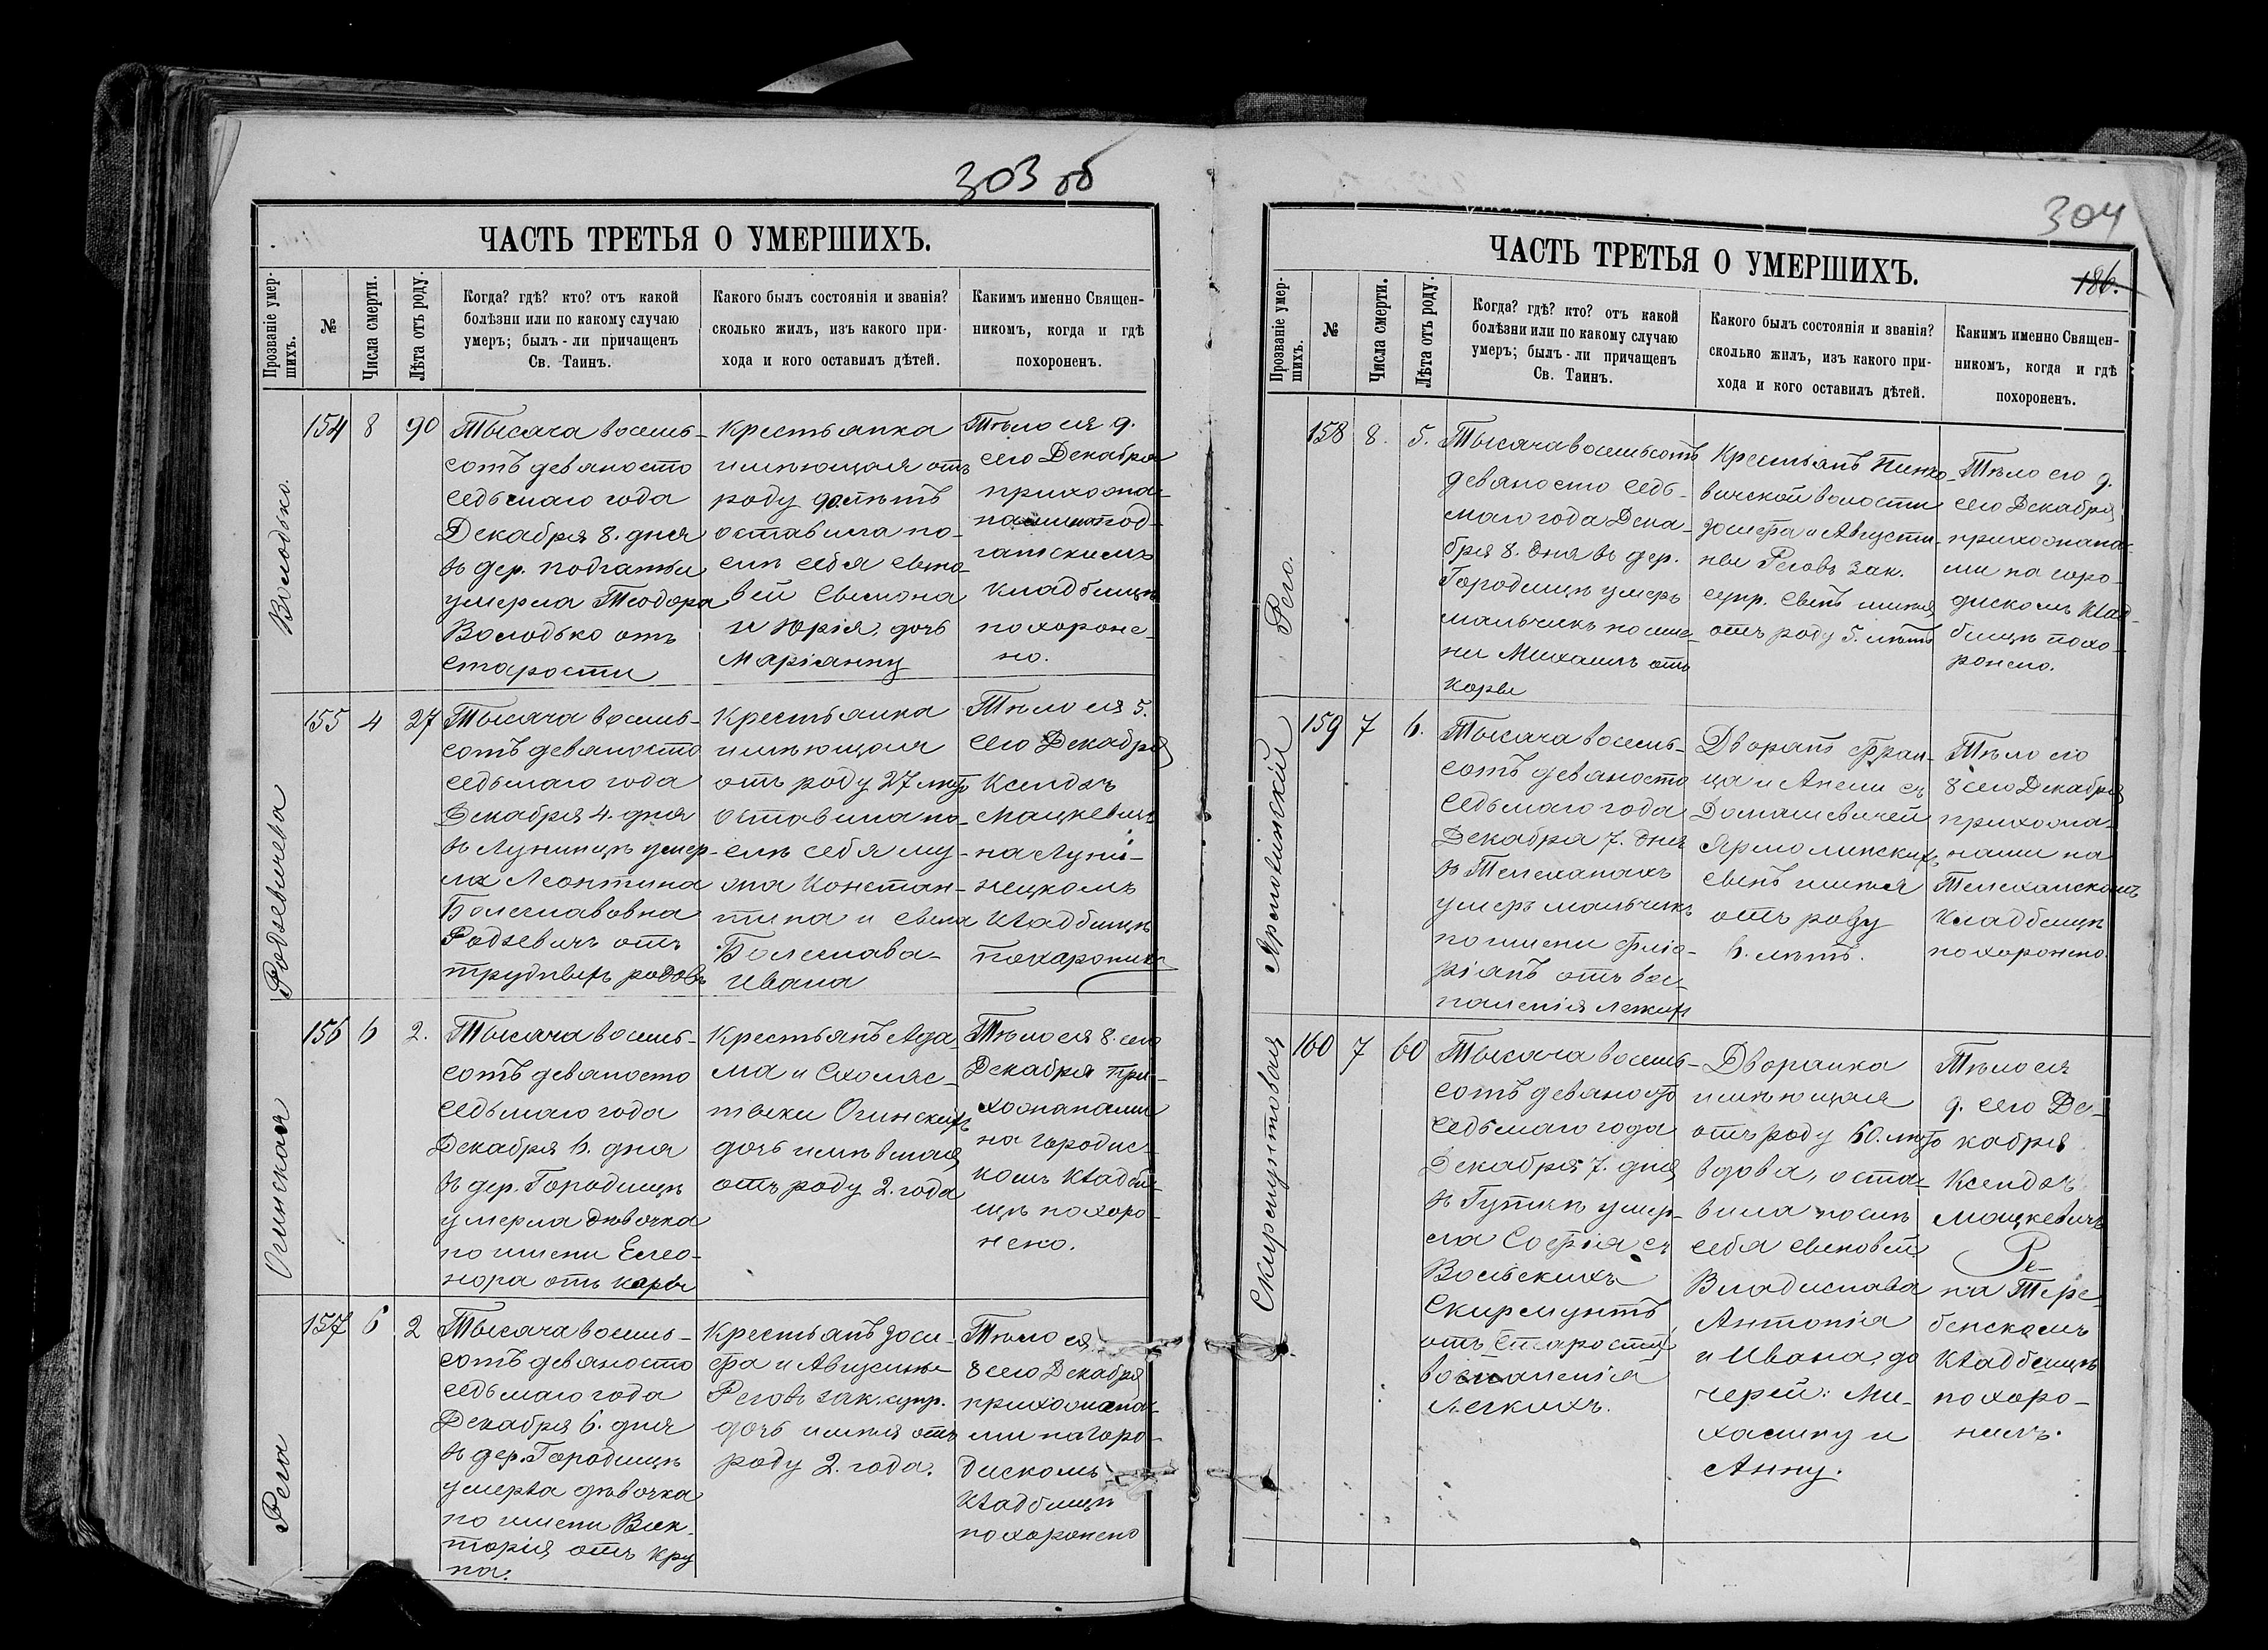 303 об
ЧАСТЬ ТРЕТЬЯ О УМЕРШИХЪ.
Прозваніе умер-
шихъ.
№
Числа смерти.
Лѣта отъ роду.
Когда? гдѣ? кто? отъ какой
болѣзни или по какому случаю
умеръ; былъ-ли причащенъ
Св. Таинъ.
Какого былъ состоянія и званія?
сколько жилъ, изъ какого при-
хода и кого оставилъ дѣтей.
Какимъ именно Священ-
никомъ, когда и гдѣ
похороненъ.
Володько.
154
8
90
Тысяча восемь-
сотъ девяносто
седьмаго года
Декабря 8. дня
въ дер. Подгатьи
умерла Теодора
Володько отъ
старости
Крестьянка
имѣющая отъ
роду 90. лѣтъ
оставила по-
слѣ себя сыно-
вей Симона
и Юрія, дочь
Маріанну
Тѣло ея 9.
сего Декабря
прихожа-
нами на под-
гатскомъ
кладбищѣ
похороне-
но.
Родзевичева
155
4
27
Тысяча восемь-
сотъ девяносто
седьмаго года
Декабря 4. дня
въ Лунинцѣ умер-
ла Леонтина
Болеславовна
Родзевичъ отъ
трудныхъ родовъ
Крестьянка
имѣющая
отъ роду 27 лѣтъ
оставила по-
слѣ себя му-
жа Констан-
тина и сына
Болеслава-
Ивана
Тѣло ея 5.
сего Декабря
Ксендзъ
Мацкевичъ
на Луни-
нецкомъ
кладбищѣ
похоронилъ
Огинская
156
6
2.
Тысяча восемь-
сотъ девяносто
седьмаго года
Декабря 6. дня
въ дер. Городищѣ
умерла дѣвочка
по имени Елео-
нора отъ кори
Крестьянъ Ада-
ма и Схоляс-
тыки Огинскихъ
дочь имѣвшая
отъ роду 2. года
Тѣло ея 8. сего
Декабря при-
хожанами
на Городис-
комъ кладби-
щѣ похоро-
нено.
Рега
157
6
2
Тысяча восемь-
сотъ девяносто
седьмаго года
Декабря 6. дня
въ дер. Городищѣ
умерла дѣвочка
по имени Вик-
торія отъ кру
па.
Крестьянъ Іоси-
фа и Августины
Реговъ зак. супр.
дочь имѣя отъ
роду 2. года.
Тѣло ея
8 сего Декабря
прихожана-
ми на Горо-
дискомъ
кладбищѣ
похоронено
304
ЧАСТЬ ТРЕТЬЯ О УМЕРШИХЪ.
186.
Прозваніе умер-
шихъ.
№
Числа смерти.
Лѣта отъ роду.
Когда? гдѣ? кто? отъ какой
болѣзни или по какому случаю
умеръ; былъ-ли причащенъ
Св. Таинъ.
Какого былъ состоянія и званія?
сколько жилъ, изъ какого при-
хода и кого оставилъ дѣтей.
Какимъ именно Священ-
никомъ, когда и гдѣ
похороненъ.
Рего.
158
8.
5.
Тысяча восемьсотъ
девяносто седь-
маго года Дека-
бря 8. дня въ дер.
Городищѣ умеръ
мальчикъ по име-
ни Михаилъ отъ
кори
Крестьянъ Пинко-
вичской волости
Іосифа и Августи-
ны Реговъ зак.
супр. сынъ имѣя
отъ роду 5. лѣтъ
Тѣло его 9.
сего Декабря
прихожана-
ми на горо-
дискомъ клад-
бищѣ похо-
ронено.
Ярмолинскій
159
7
6.
Тысяча восемь-
сотъ девяносто
седьмаго года
Декабря 7. дня
въ Телеханахъ
умеръ мальчикъ
по имени Фло-
ріанъ отъ вос-
паленія легкихъ
Дворянъ Фран-
ца и Анели съ
Домашевичей
Ярмолинскихъ
сынъ имѣя
отъ роду
6. лѣтъ.
Тѣло его
8 сего Декабря
прихожа-
нами на
Телеханскомъ
кладбищѣ
похоронено.
Скирмунтовая
160
7
60
Тысяча восемь-
сотъ девяносто
седьмаго года
Декабря 7. дня
въ Гуткѣ умер-
ла Софія съ
Вольскихъ
Скирмунтъ
отъ старости,
воспаленія
легкихъ.
Дворянка
имѣющая
отъ роду 60. лѣтъ
вдова, оста-
вила послѣ
себя сыновей
Владислава
Антонія
и Ивана, до
черей: Ми-
халину и
Анну.
Тѣло ея
9. сего Де-
кабря
Ксендзъ
Мацкевичъ
на Тере-
бенскомъ
кладбищѣ
похоро-
нилъ.